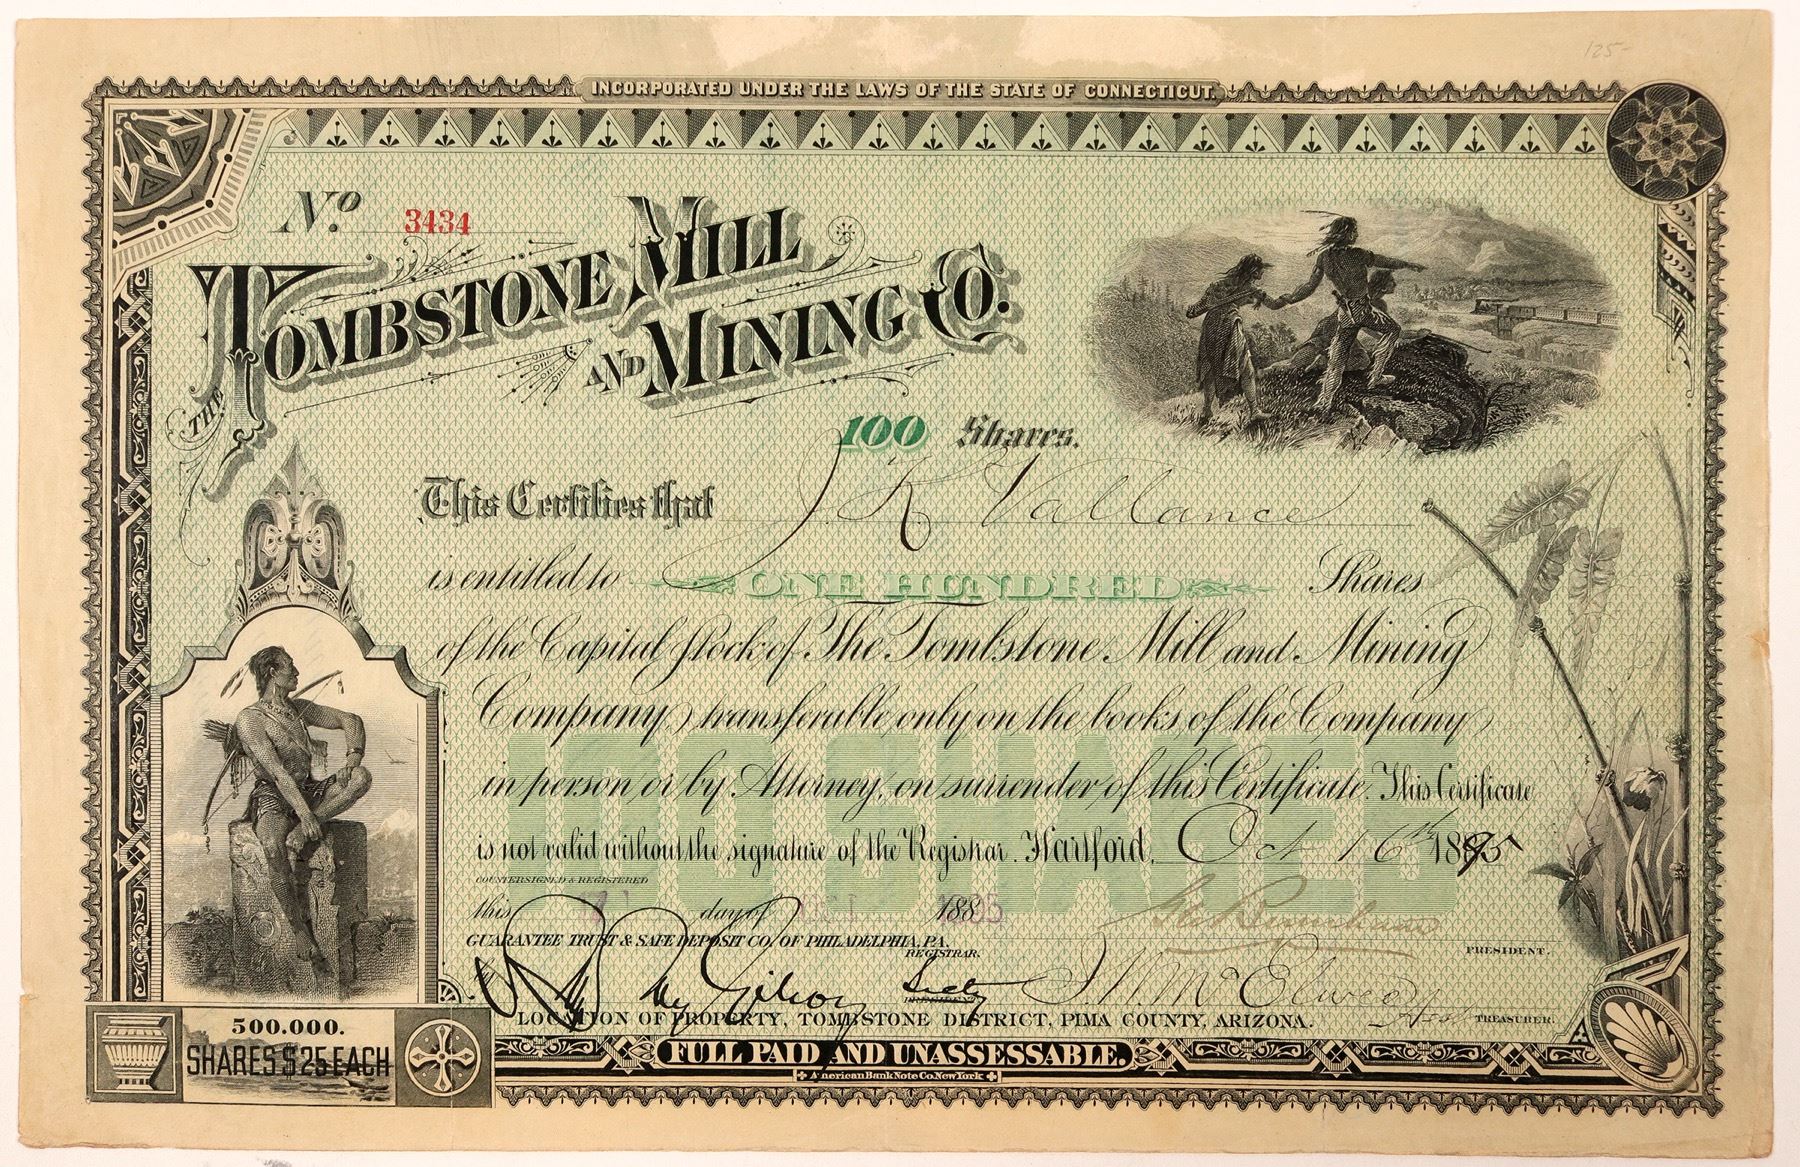 125-
INCORPORATED UNDER THE LAWS OF THE STATE OF CONNECTICUT.
No. 3434
THE TOMBSTONE MILL
AND MINING CO.
100 Shares.
This Certifies that J K Vallance
is entitled to ONE HUNDRED Shares
of the Capital Stock of The Tombstone Mill and Mining
Company transferable only on the books of the Company
in person or by Attorney, on surrender of this Certificate. This Certificate
is not valid without the signature of the Registrar. Hartford, Oct 16th 1885
100 SHARES
COUNTERSIGNED & REGISTERED
this day of 188
GUARANTEE TRUST & SAFE DEPOSIT CO. OF PHILADELPHIA, PA.
REGISTRAR.
PRESIDENT.
By
PRESIDENT
TREASURER.
LOCATION OF PROPERTY, TOMBSTONE DISTRICT, PIMA COUNTY, ARIZONA.
500.000.
SHARES $25 EACH
FULL PAID AND UNASSESSABLE.
American Bank Note Co. New York